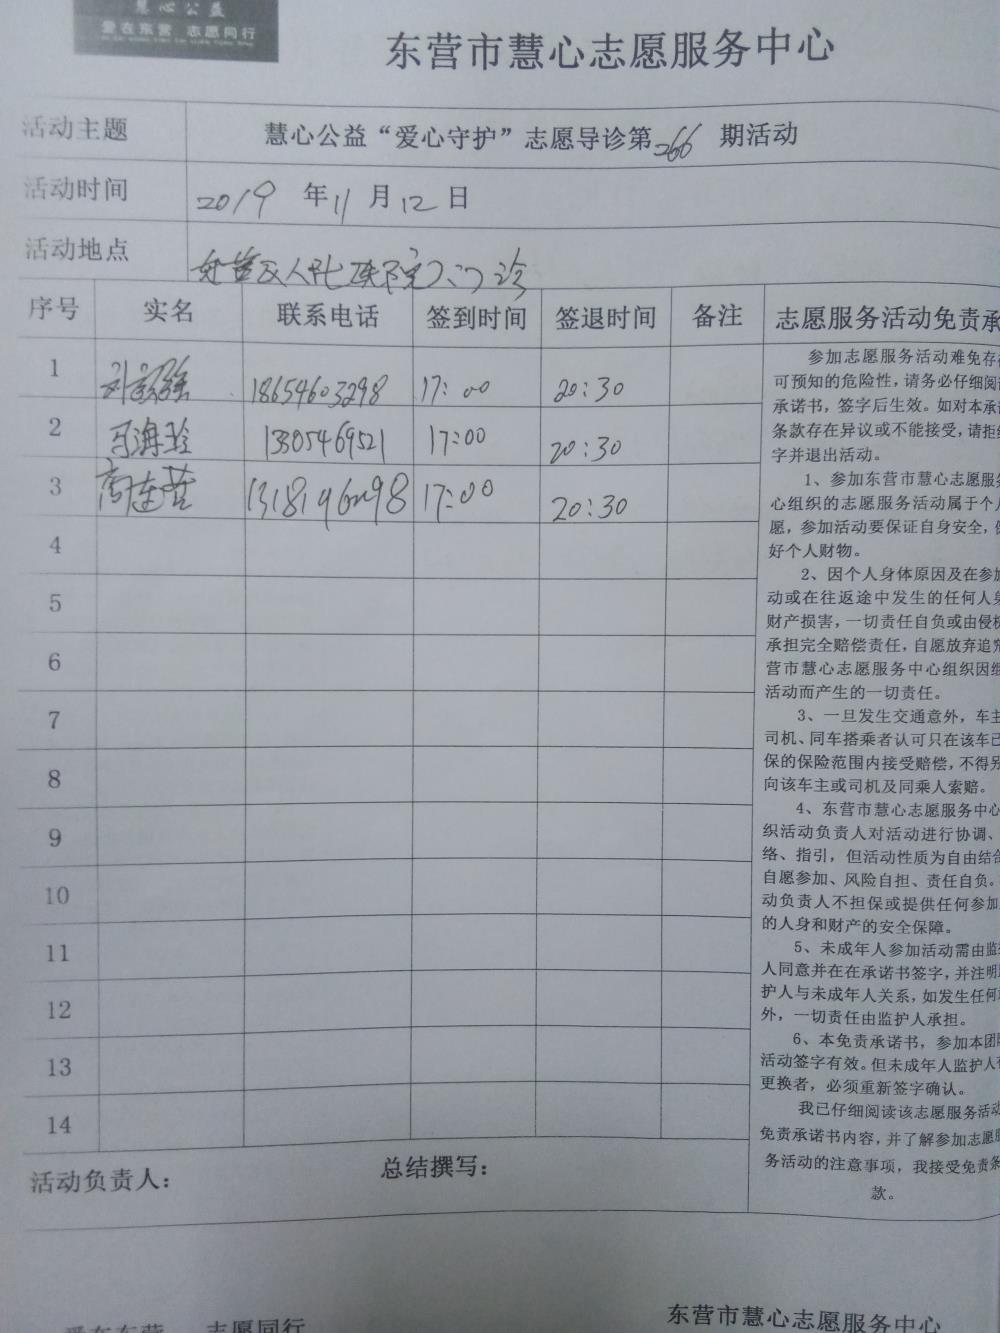 慧心公益
爱在东营 志愿同行
东营市慧心志愿服务中心
活动主题 慧心公益“爱心守护”志愿导诊第266期活动
活动时间 2019年11月12日
活动地点 东营区人民医院门诊
序号 实名 联系电话 签到时间 签退时间 备注 志愿服务活动免责承
1 18654603298 17:00 20:30
2 马海玲 13305469521 17:00 20:30
3 高连营 17:00 20:30
4
5
6
7
8
9
10
11
12
13
14
参加志愿服务活动难免存
可预知的危险性,请务必仔细阅
承诺书,签字后生效。如对本承
条款存在异议或不能接受,请拒
字并退出活动。
1、参加东营市慧心志愿服
心组织的志愿服务活动属于个
愿,参加活动要保证自身安全,
好个人财物。
2、因个人身体原因及在参加
动或在往返途中发生的任何人
财产损害,一切责任自负或由侵
承担完全赔偿责任,自愿放弃追
营市慧心志愿服务中心组织因
活动而产生的一切责任。
3、一旦发生交通意外,车主
司机、同车搭乘者认可只在该车已
保的保险范围内接受赔偿,不得另
向该车主或司机及同乘人索赔。
4、东营市慧心志愿服务中心
织活动负责人对活动进行协调、
络、指引,但活动性质为自由结合
自愿参加、风险自担、责任自负。
动负责人不担保或提供任何参加
的人身和财产的安全保障。
5、未成年人参加活动需由监
人同意并在在承诺书签字,并注明
护人与未成年人关系,如发生任何
外,一切责任由监护人承担。
6、本免责承诺书,参加本团
活动签字有效。但未成年人监护人
更换者,必须重新签字确认。
我已仔细阅读该志愿服务活动
免责承诺书内容,并了解参加志愿服
务活动的注意事项,我接受免责条
款。
活动负责人: 总结撰写:
爱在东营 志愿同行 东营市慧心志愿服务中心